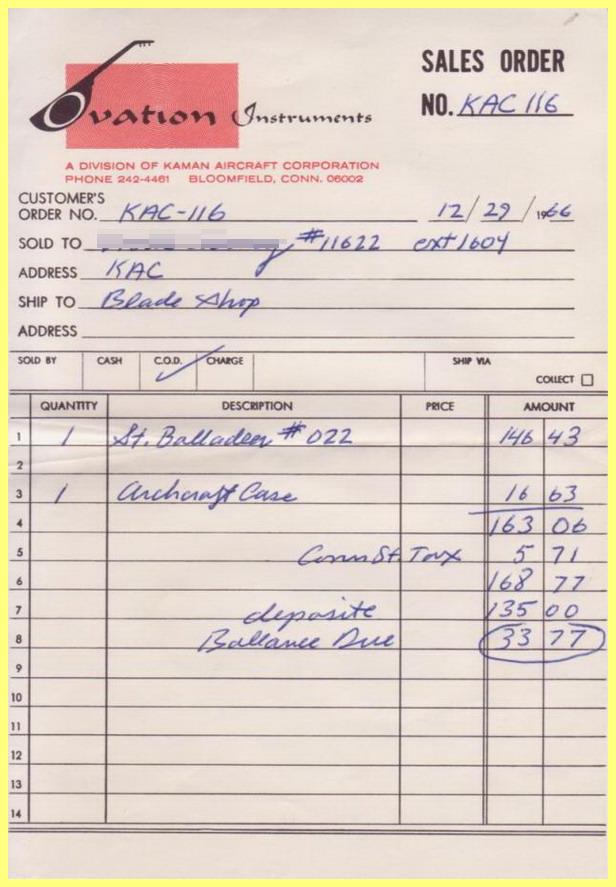 SALES ORDER
NO. KAC 116
Ovation Instruments
A DIVISION OF KAMAN AIRCRAFT CORPORATION
PHONE 242-4461 BLOOMFIELD, CONN. 06002
CUSTOMER'S
ORDER NO. KAC-116 12/29/1966
SOLD TO #11622 ext 1604
ADDRESS KAC
SHIP TO Blade Shop
ADDRESS
SOLD BY CASH C.O.D. CHARGE SHIP VIA
COLLECT
QUANTITY DESCRIPTION PRICE AMOUNT
1 1 St. Balladeer #022 146 43
2
3 1 Archcraft Case 16 63
4 163 06
5 Conn St. Tax 5 71
6 168 77
7 deposite 135 00
8 Ballance Due 33 77
9
10
11
12
13
14